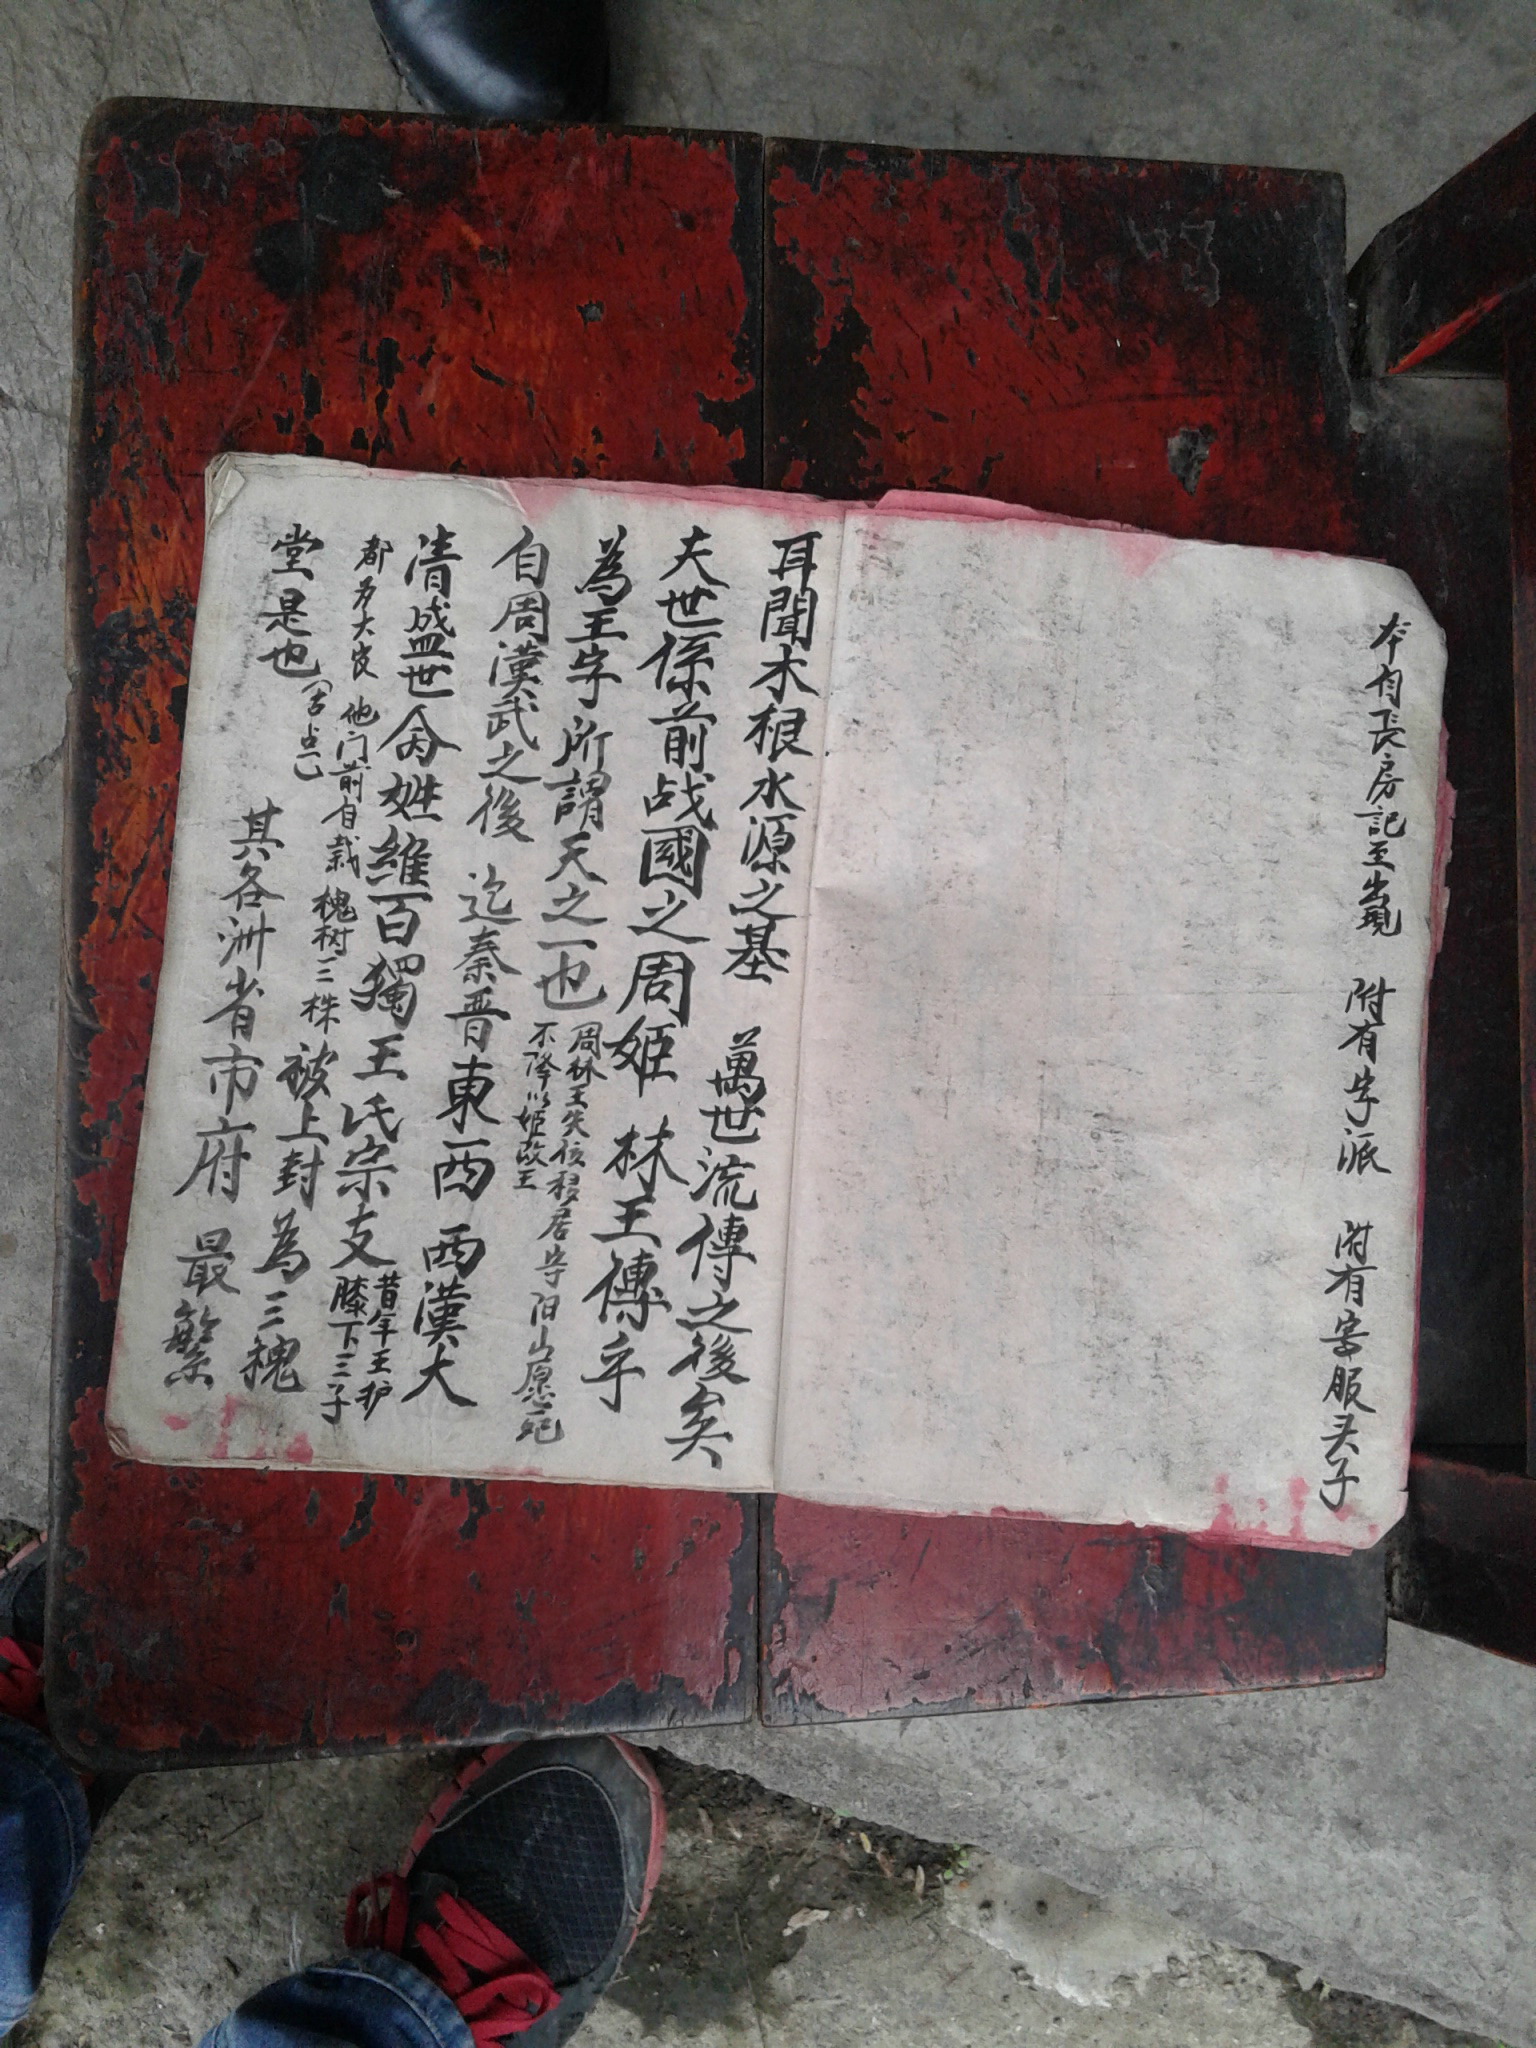 本自長房記至 附有字派 附有客服头子
耳聞木根水源之基 萬世流傳之後矣
夫世係前战國之周姬 林王傳乎
為王字所謂天之一也
周林王失 移居守阳山愿死
不降以姬改王
自周漢武之後 迄秦晋東西 西漢大
清盛世 姓維百獨王氏宗支
昔年王护
膝下三子
都为大官 他门前自栽槐树三株 被上封為三槐
堂是也
其各洲省市府 最繁